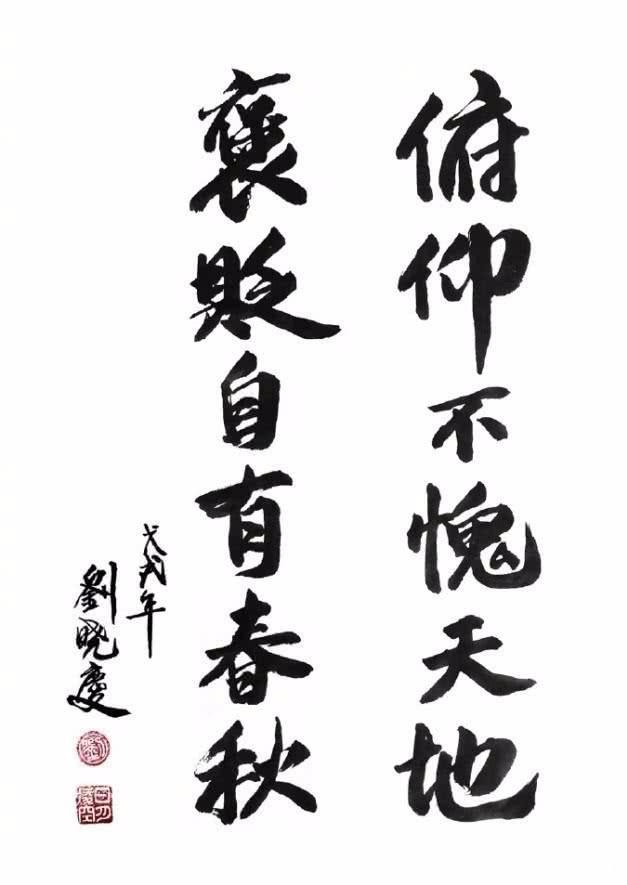 俯仰不愧天地
褒貶自有春秋
戊戌年
劉曉慶